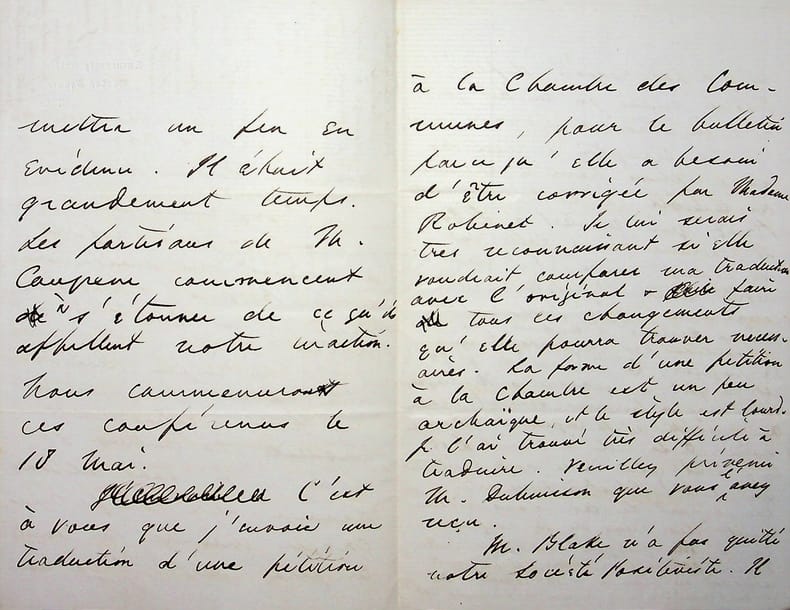 mettre un peu en
évidence. Il était
grandement temps.
Les partisans de M.
Congreve commencent
à s'étonner de ce qu'ils
appellent notre inaction.
Nous commencerons
ces conférences le
18 Mai.
C'est
à vous que j'envoie une
traduction d'une pétition
à la Chambre des Com-
munes, pour le bulletin
parcequ'elle a besoin
d'être corrigée par Madame
Robinet. Je lui serais
très reconnaissant si elle
voudrait comparer ma traduction
avec l'original & faire
tous les changements
qu'elle pourra trouver neces-
aires. La forme d'une pétition
à la Chambre est un peu
archaïque, et le style est lourd.
Je l'ai trouvé très difficile à
traduire. Veuillez prévenir
M. Dubuisson que vous l'avez
reçu.
M. Blake n'a pas quitté
notre Société Positiviste. Il